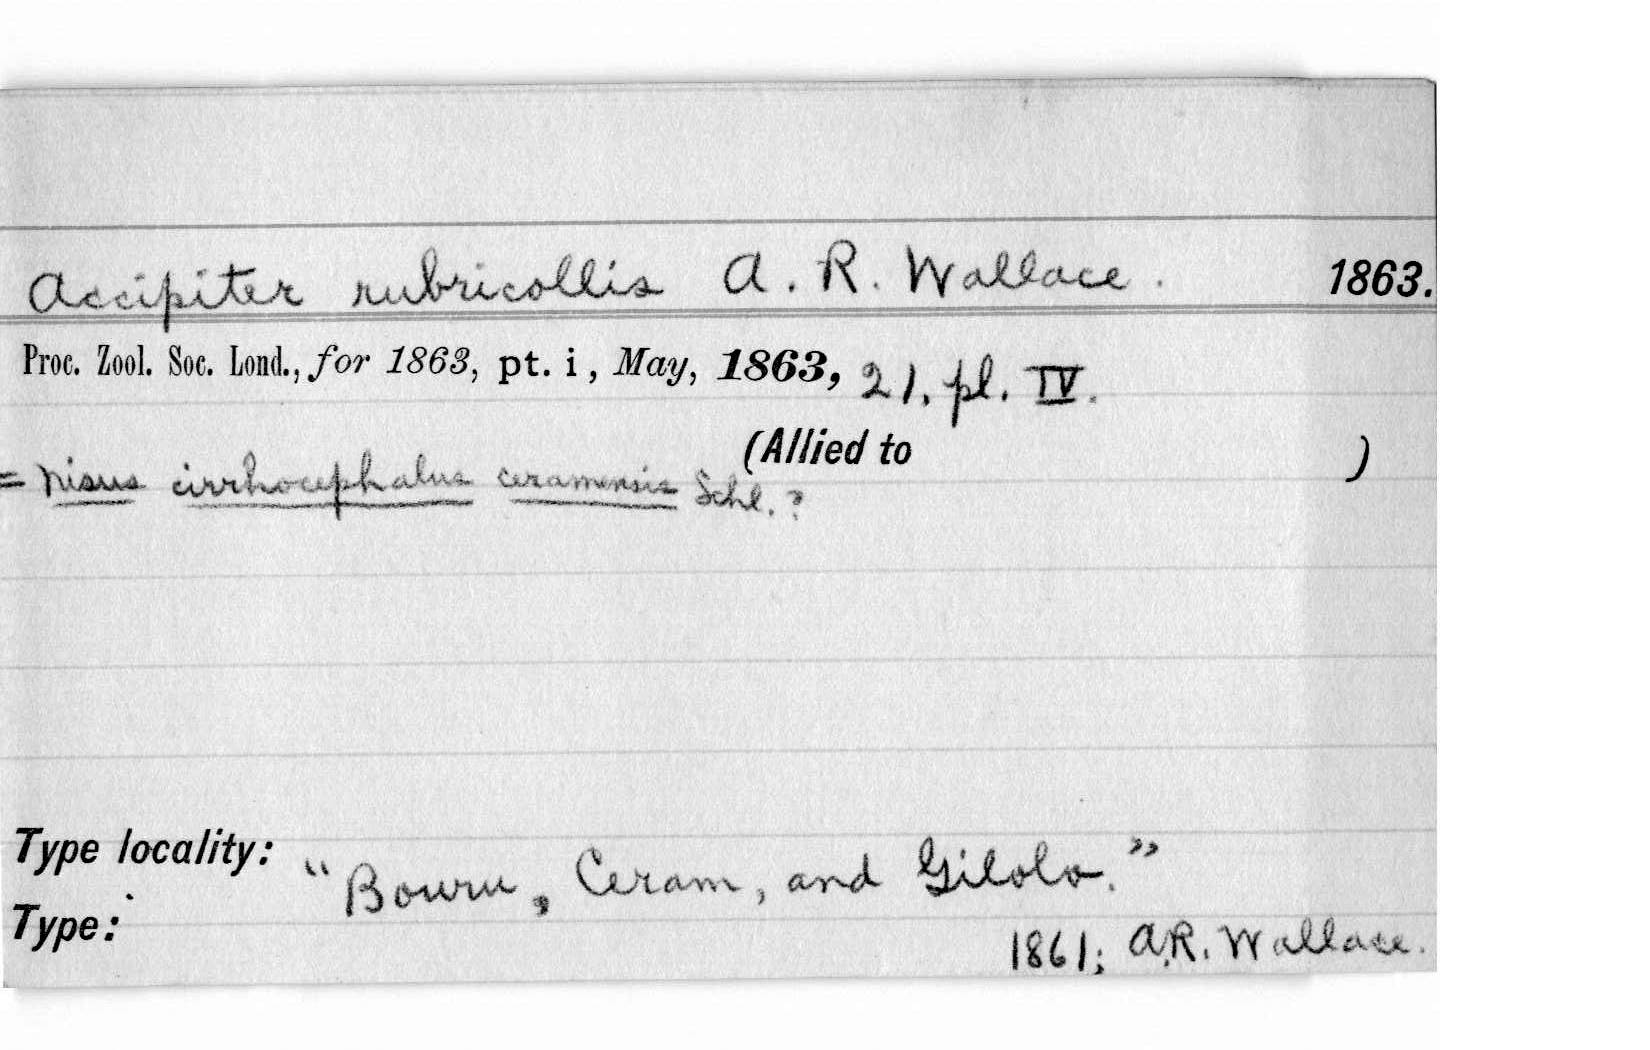 Accipiter rubricollis A. R. Wallace. 1863.
Proc. Zool. Soc. Lond., for 1863, pt. i, May, 1863, 21, pl. IV.
(Allied to )
= Nisus cirrhocephalus ceramensis Schl.?
Type locality: "Bouru, Ceram, and Gilolo."
Type: 1861; A.R. Wallace.